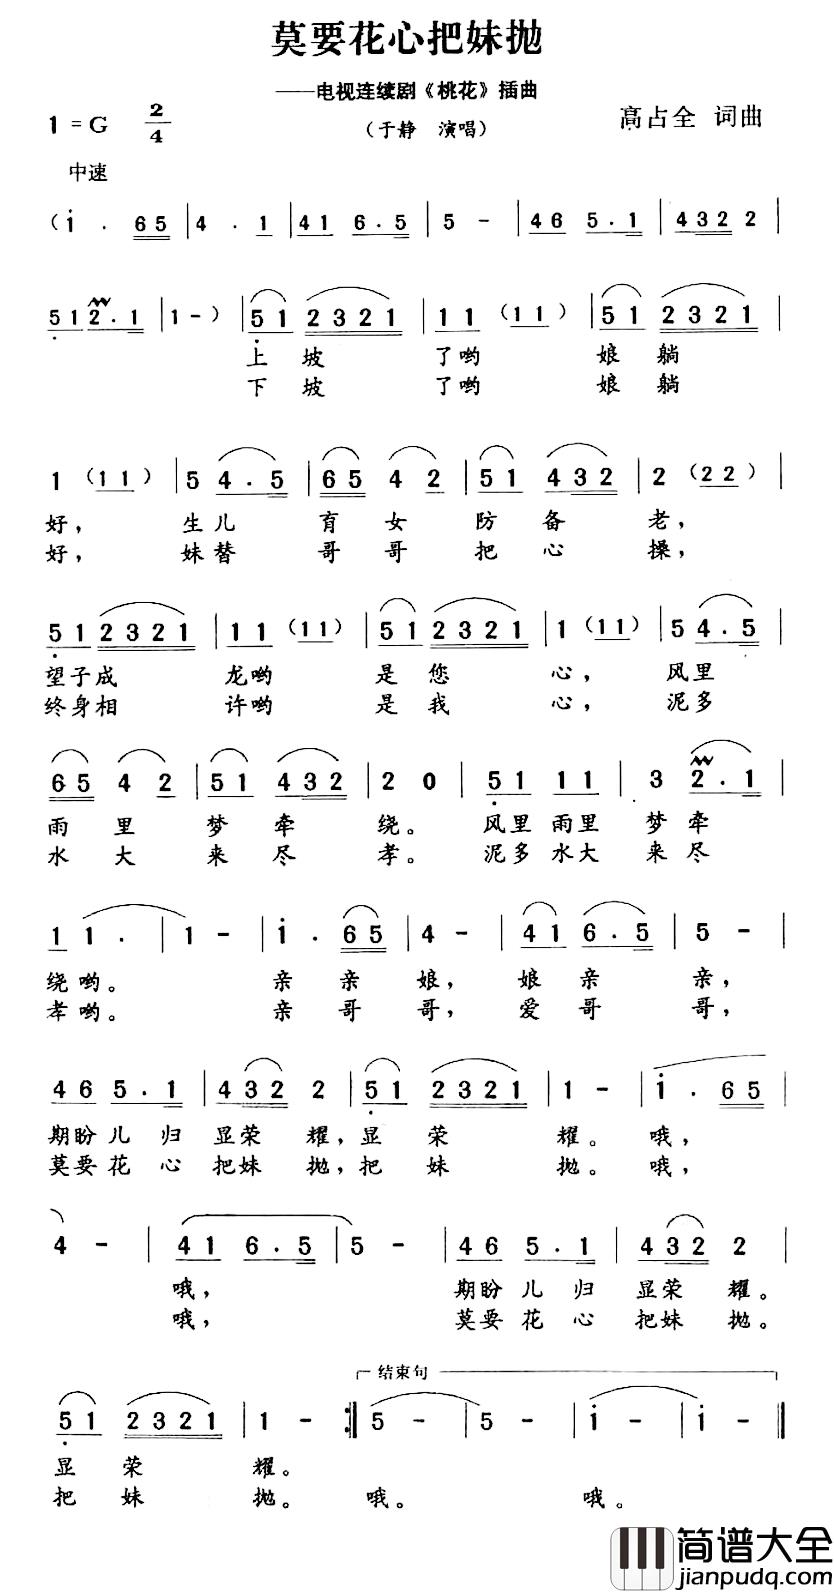 莫要花心把妹抛
——电视连续剧《桃花》插曲
1=G 2/4 （于静 演唱） 高占全 词曲
中速
（i · 65 | 4 · 1 | 41 6·5 | 5 - | 46 5·1 | 4322 2 |
51 2·1 | 1 - ） | 51 2321 | 11 （11） | 51 2321 |
上坡 了哟 娘躺
下坡 了哟 娘躺
1 （11） | 5 4·5 | 65 4 2 | 51 432 | 2 （22） |
好， 生儿 育女 防备 老，
好， 妹替 哥哥 把心 操，
51 2321 | 11 （11） | 51 2321 | 1 （11） | 5 4·5 |
望子成 龙哟 是您 心， 风里
终身相 许哟 是我 心， 泥多
65 4 2 | 51 432 | 2 0 | 51 11 | 3 2·1 |
雨里 梦牵 绕。 风里雨里 梦牵
水大 来尽 孝。 泥多水大 来尽
1 1· | 1 - | i · 65 | 4 - | 41 6·5 | 5 - |
绕哟。 亲亲 娘， 娘亲 亲，
孝哟。 亲哥 哥， 爱哥 哥，
46 5·1 | 432 2 | 51 2321 | 1 - | i · 65 |
期盼儿归 显荣 耀，显荣 耀。 哦，
莫要花心 把妹 抛，把妹 抛。 哦，
4 - | 41 6·5 | 5 - | 46 5·1 | 432 2 |
哦， 期盼儿归 显荣 耀。
哦， 莫要花心 把妹 抛。
结束句
51 2321 | 1 - :| 5 - | 5 - | i - | i - |]
显荣 耀。
把妹 抛。 哦。 哦。
简谱大全
jianpudq.com